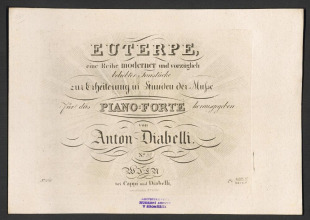 EUTERPE,
eine Reihe moderner und vorzüglich
beliebter Tonstücke
zur Erheiterung in Stunden der Muße
für das PIANO-FORTE herausgegeben
von
Anton Diabelli.
No.
WIEN
bei Cappi und Diabelli,